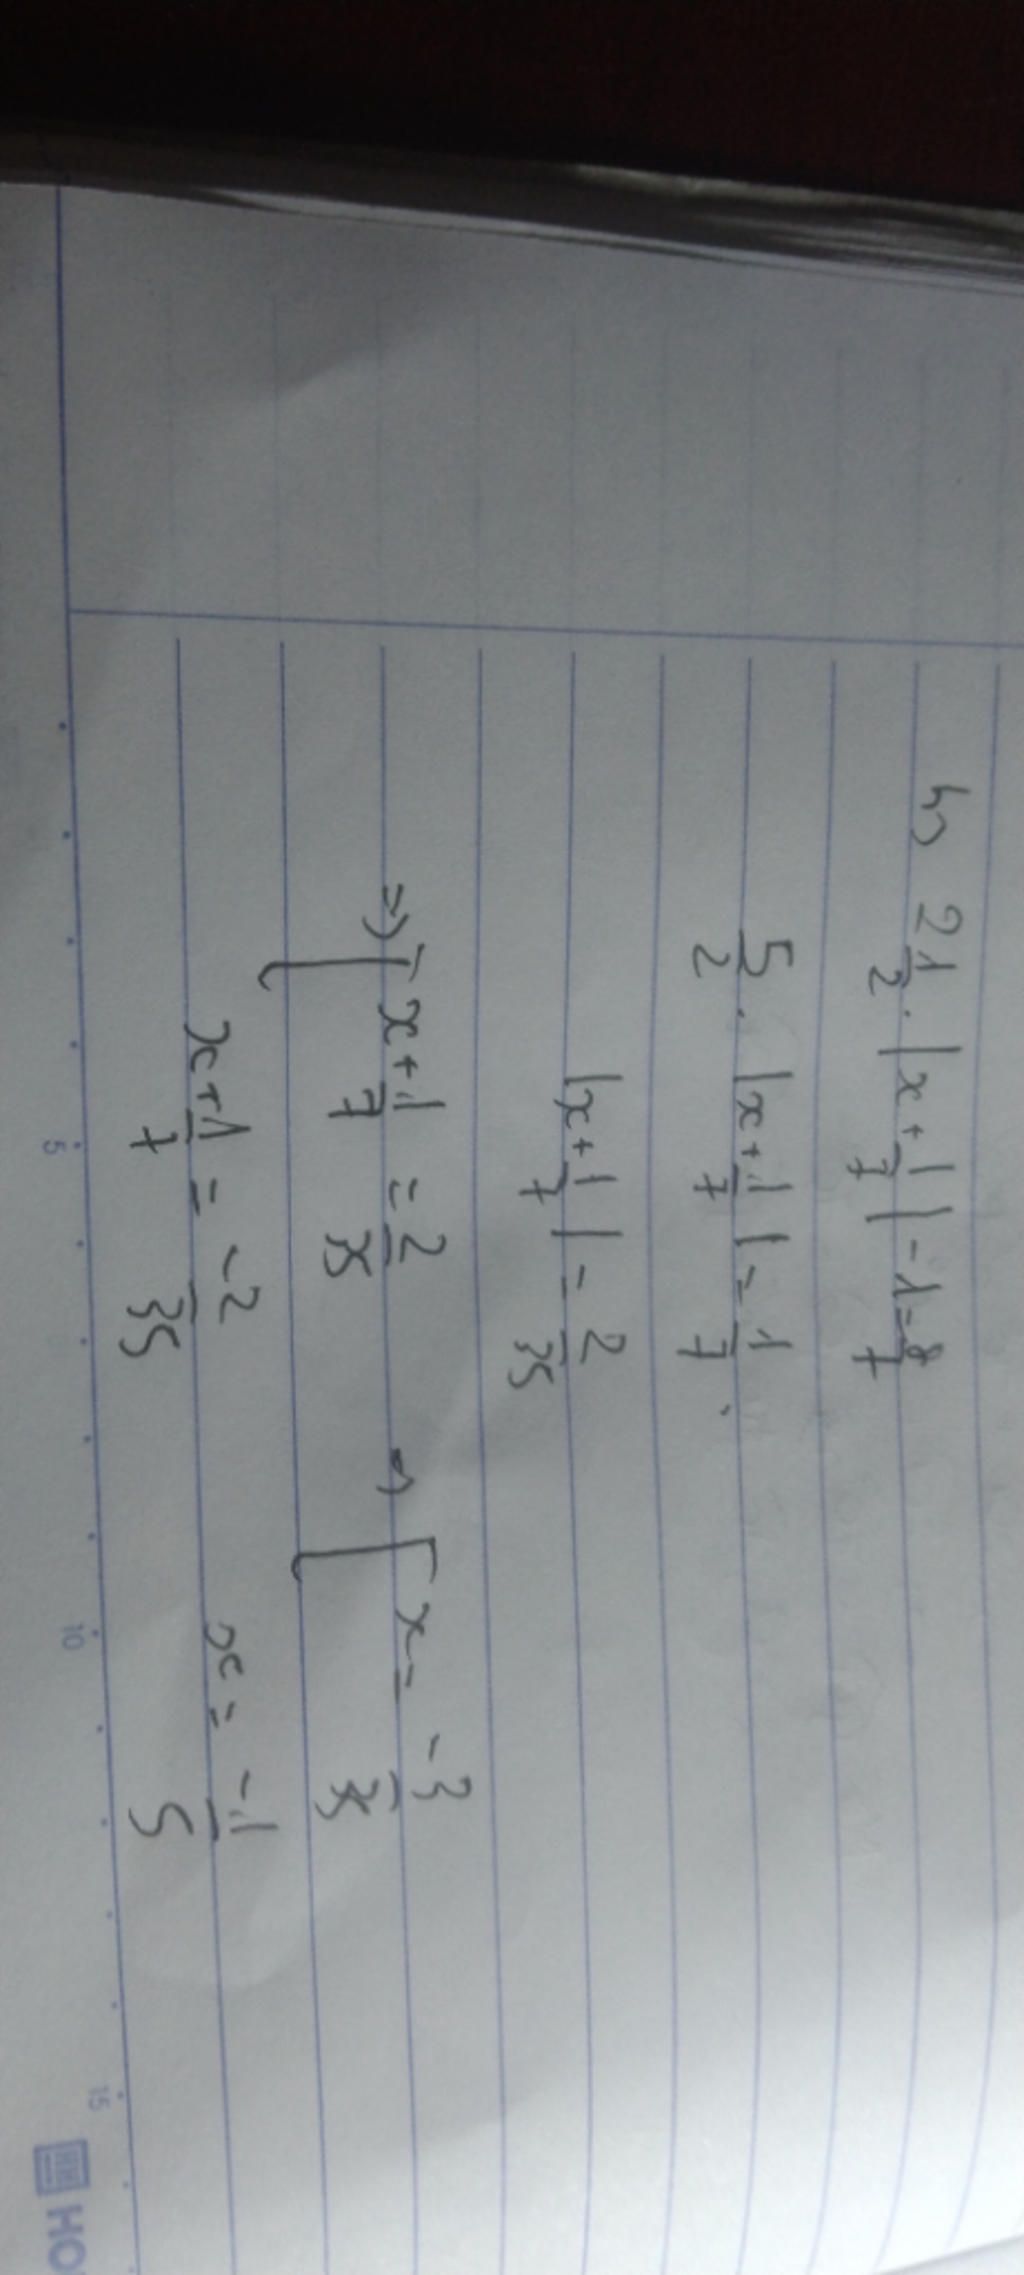 b) 2 1/2 . |x + 1/7| - 1 = 8/7
5/2 . |x + 1/7| = 1/7 .
|x + 1/7| = 2/35
=> [ x + 1/7 = 2/35 => [ x = -3/35
x + 1/7 = -2/35 x = -1/5
5 10 15
HO